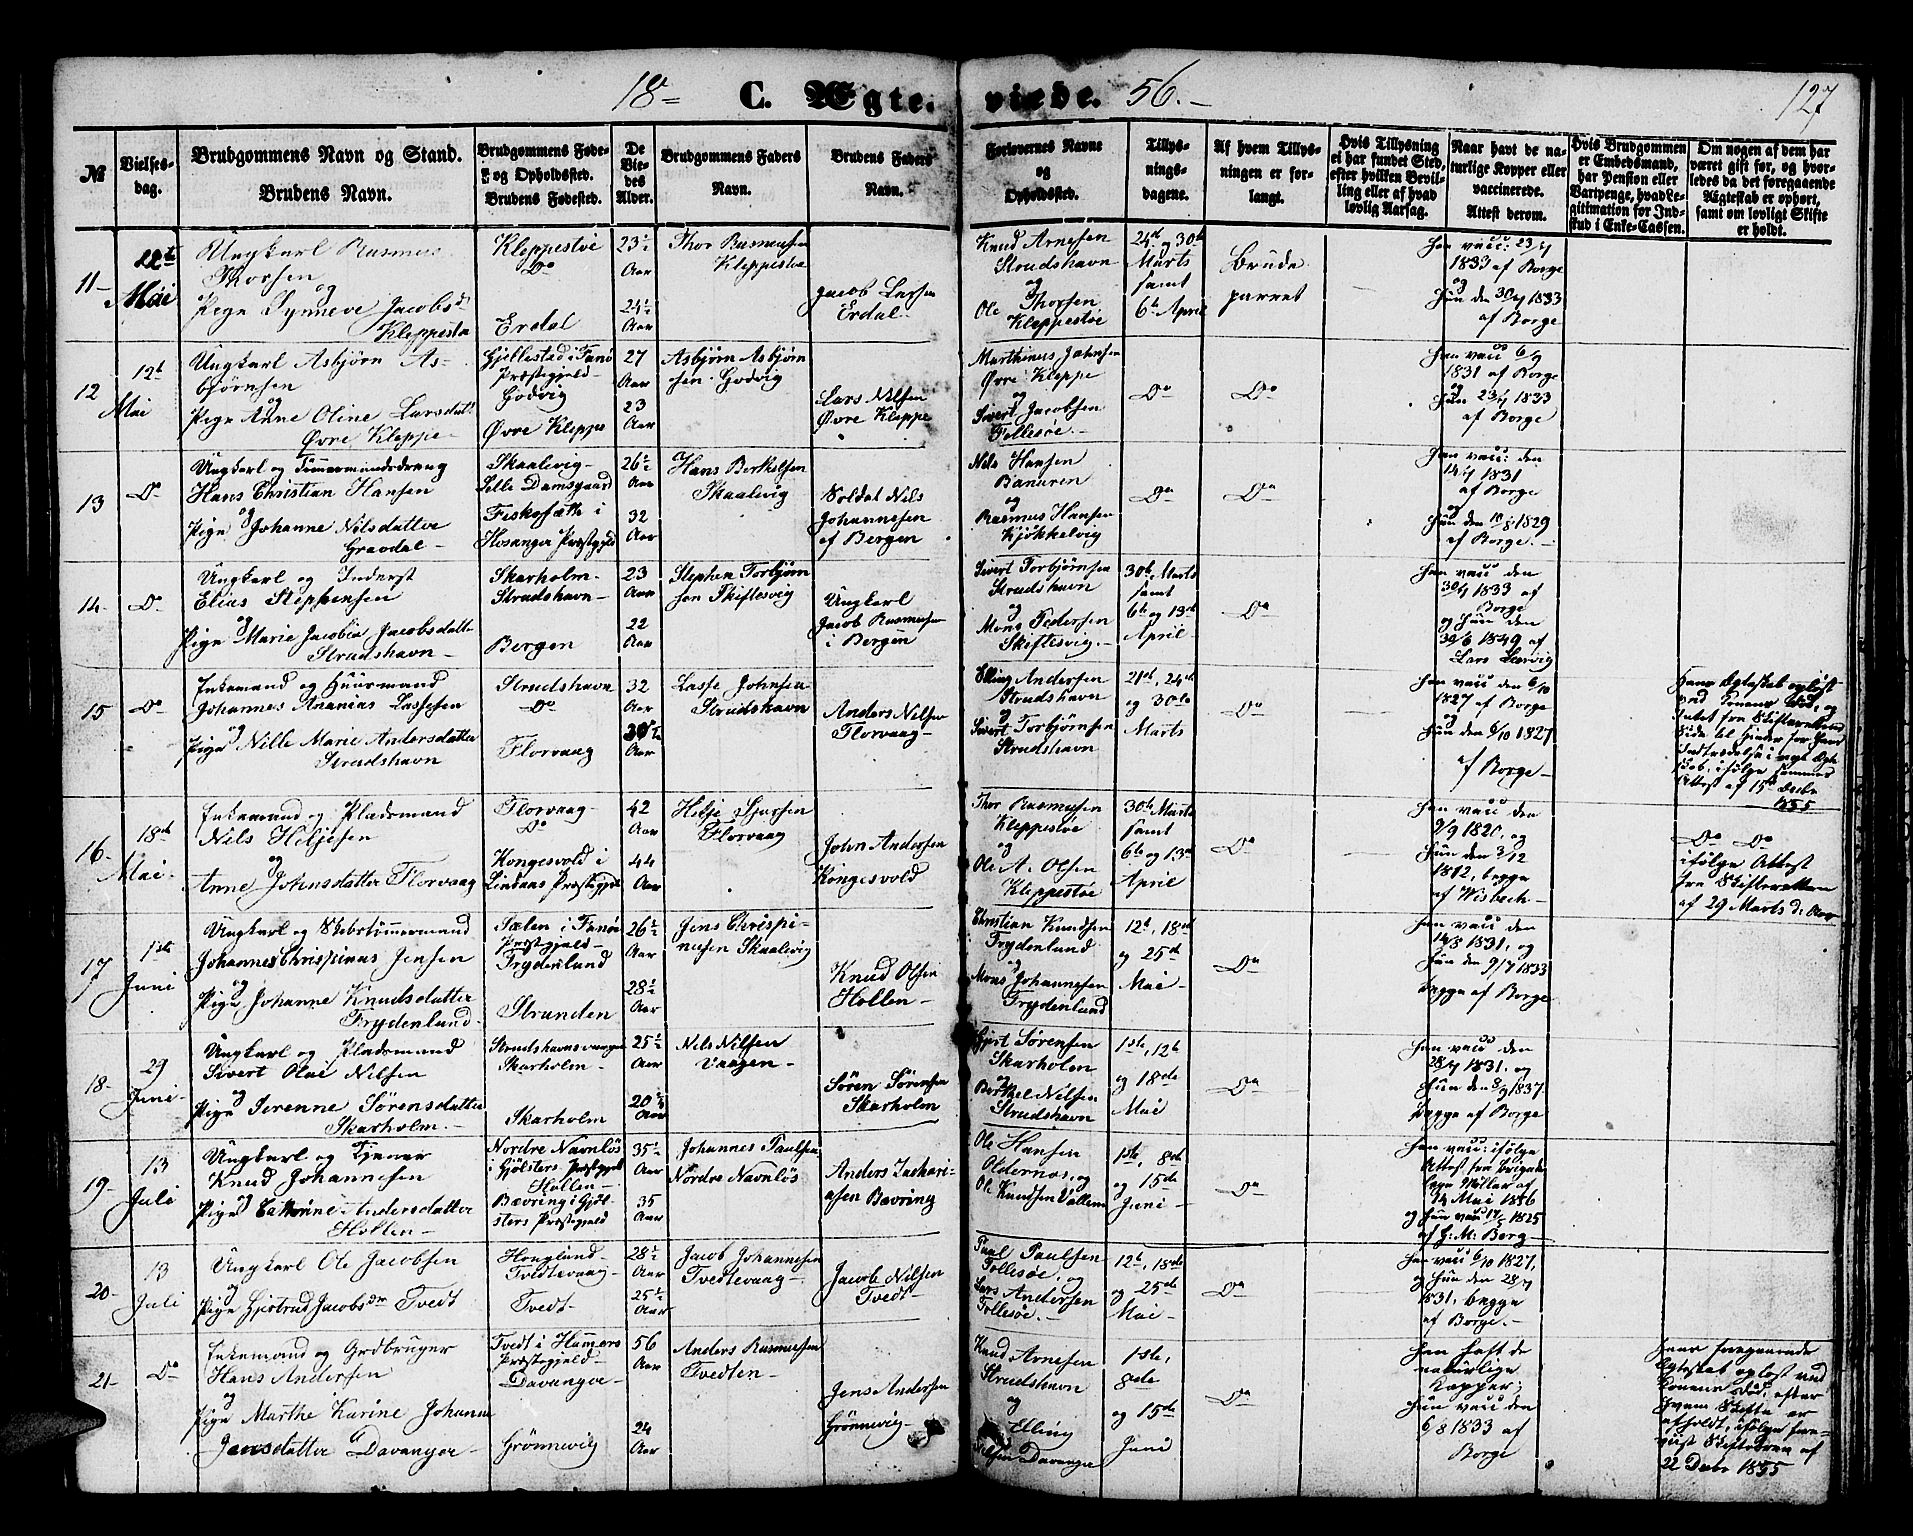 18 C. Ægteviede. 56.
127
№
Vielsesdag.
Brudgommens Navn og Stand.
Brudens Navn.
Brudgommens Føde- og Opholdssted.
Brudens Fødested.
De Viedes Alder.
Brudgommens Faders Navn.
Brudens Faders Navn.
Forlovernes Navne og Opholdssted.
Tillysningsdagene.
Af hvem Tillysningen er forlangt.
Hvis Tillysning ei har fundet Sted, efter hvilken Bevilling eller af hvad lovlig Aarsag.
Naar havt de naturlige Kopper eller vaccinerede.
Attest derom.
Hvis Brudgommen er Embedsmand, har Pension eller Vartpenge, hvad Legitimation for Indskud i Enke-Cassen.
Om nogen af dem har været gift før, og hvorledes da det foregaaende Ægteskab er ophørt, samt om lovligt Skifte er holdt.
11
Mai
Ungkarl Rasmus
Thorsen
og
Pige Synneve Jacobsd
Kleppestø
Kleppestø
Do
Erdal
23½
Aar
24½
Aar
Thor Rasmussen
Kleppestø
Jacob Larsen
Erdal
Knud Arnesen
Strudshavn
og
Ole Thorsen
Kleppestøe
24de og 30te
Marts
samt
6te April
Brude
parret
Han vacc: 23/7
1833 af Borge
og
Hun den 30/7 1833
af Borge
12
12te
Mai
Ungkarl Asbjørn As-
bjørnsen
og
Pige Anne Oline Larsdatt
Øvre Kleppe
Gjellestad i Fanø
Præstegjeld
Godvig
Øvre Kleppe
27
Aar
23
Aar
Asbjørn Asbjørn
sen. Godvig
Lars Nilsen
Øvre Kleppe
Marthinus Johnsen
Øvre Kleppe
og
Sivert Jacobsen
Follesøe
Do
Do
Han vacc 6/9
1831 af Borge
og
Hun 23/7 1833
af Borge
13
Do
Ungkarl og Tømmermandsdreng
Hans Christian Hansen
og
Pige Johanne Nilsdatter
Graadal
Skaalevig
Lille Damsgaard
Fiskesæth i
Hosanger Præstegjeld
26½
Aar
32
Aar
Hans Berthelsen
Skaalevig
Soldat Nils
Johannesen
af Bergen
Nils Hansen
Banuren
og
Rasmus Hansen
Kjøkkelvig
Do
Do
Han vacc: den
14/7 1831
af Borge
og
Hun den 10/8 1829
af Borge
14
Do
Ungkarl og Inderst
Elias Stephensen
og
Pige Marie Jacobia Jacobsdatter
Strudshavn
Skarholm
Strudshavn
Bergen
23
Aar
22
Aar
Stephen Torbjørn
sen Skiftesvig
Ungkarl
Jacob Rasmussen
i Bergen
Sivert Torbjørnsen
Strudshavn
og
Mons Pedersen
Skiftesvig
30te Marts
samt
6te og 13de
April
Do
Han vacc den
30/7 1833 af
Borge
og Hun den
30/6 1849 af
Lars Lervig
15
Do
Enkemand og Huusmand
Johannes Ananias Lassesen
og
Pige Nille Marie Andersdatter
Strudshavn
Strudshavn
Do
Florvaag
32
Aar
30½
Aar
Lasse Johnsen
Strudshavn
Anders Nilsen
Florvaag
Elling Andersen
Strudshavn
og
Sivert Torbjørnsen
Strudshavn
21de, 24de
og 30te
Marts
Do
Han vacc den 6/10
1827 af Borge
og
Hun den 6/10 1827
af Borge
Hans Ægteskab opløst
ved Konens Død, og
Intet fra Skifterettens
Side til Hinder for hans
Indtrædelse i nyt Ægte
skab, ifølge Sammes
Attest af 15de Decbr
1855
16
18de
Mai
Enkemand og Pladsmand
Nils Heljesen
og
Anne Johnsdatter Florvaag
Florvaag
Do
Kongesvold i
Lindaas Præstegjeld
42
Aar
44
Aar
Helje Sjursen
Florvaag
John Andersen
Kongesvold
Thor Rasmusen
Kleppestøe
og
Ole A. Olsen
Kleppestøe
30te Marts
samt
6te og 13de
April
Do
Han vacc den
9/9 1820, og
Hun den 3/12
1812, begge
af Wisbech
Do Do
ifølge Attest
fra Skifteretten
af 29 Marts d: Aar
17
1ste
Juni
Ungkarl og Skibstømmermand
Johannes Chrispinus Jensen
og
Pige Johanne Knudsdatter
Frydenlund
Sælen i Fanø
Præstegjeld
Frydenlund
Strunden
26½
Aar
28½
Aar
Jens Chrispi-
nusen Skaalevig
Knud Olsen
Hollen
Christian Knudsen
Frydenlund
og
Mons Johannesen
Frydenlund
12te, 18de
og 25de
Mai
Do
Han vacc den
14/8 1831, og
Hun den 9/7 1833
begge af Borge
18
29
Juni
Ungkarl og Pladsmand
Sivert Olai Nilsen
og
Pige Serenne Sørensdatter
Skarholm
Strudshavnsvaagen
Skarholm
Skarholm
25½
Aar
20½
Aar
Nils Nilsen
Vaagen
Søren Sørensen
Skarholm
Gjert Sørensen
Skarholm
og
Berthel Nilsen
Strudshavn
1ste, 12te
og 18de
Mai
Do
Han vacc den
28/7 1831, og
Hun den 8/9 1837
begge af Borge
19
13
Juli
Ungkarl og Tjener
Knud Johannesen
og
Pige Cathrine Andersdatter
Hollen
Nordre Navnløs
i Gjølsters Præstegjeld
Hollen
Bævring i Gjøl
sters Præstegjeld
35½
Aar
35
Aar
Johannes Paulsen
Nordre Navnløs
Anders Zachari-
asen Bævring
Ole Hansen
Oldernæs, og
Ole Knudsen Vallem
1ste, 8de
og 15de
Juni
Do
Han vacc: ifølge
Attest fra Brigade
læge Møller af
Mai 1856
og Hun vacc 1825
af H: M: Berg
20
13
Juli
Ungkarl Ole Jacobsen
og
Pige Gjertrud Jacobsdr Tvedt
Houglund
Tvedtevaag
Tvedt
28½
Aar
25½
Aar
Jacob Johannesen
Tvedtevaag
Jacob Nilsen
Tvedt
Paul Paulsen
Follesøe, og
Lars Andersen
Follesøe
12te, 18de
og 25de
Mai
Do
Han vacc 6/10 1827,
og Hun den 28/7
1831, begge
af Borge
21
Do
Enkemand og Grdbruger
Hans Andersen
og
Pige Marthe Karine Johanne
Jensdatter Davanger
Tvedt i Hammers
Præstegjeld
Davanger
Grønnevig
56
Aar
24
Aar
Anders Rasmussen
Tvedten
Jens Andersen
Grønnevig
Knud Arnesen
Strudshavn
og
Elling
Nilsen Davanger
1ste,
8de
og 15de
Juni
Do
Han haft de
naturlige
Kopper;
Hun vacc den
6/8 1833 af
Borge
Hans foregaaende
Ægteskab opløst ved
Konens Død, efter
hvem Skifte er
afholdt, ifølge fore-
viist Skiftebrev af
22 Decbr 1855